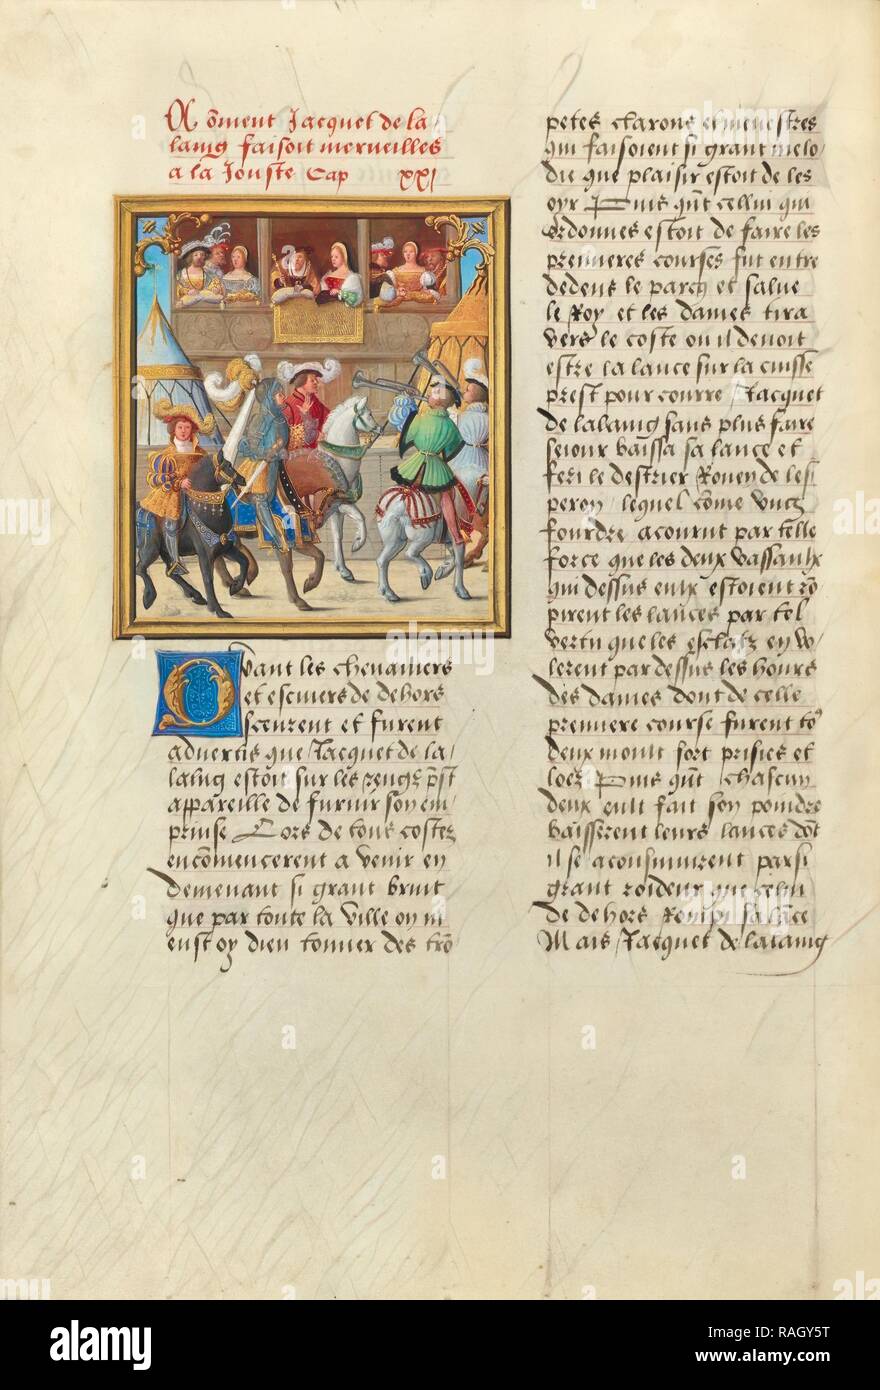 Comment Jacquet de la
laing faisoit merveilles
a la Jouste Cap xxi
Quant les chevaliers
et escuiers de dehors
sceurent et furent
advertis que Jacquet de la
laing estoit sur les rengz prest
appareille de furnir son em
prinse Lors de tous costez
encommencerent a venir en
demenant si grant bruit
que par toute la ville on ny
eust oy dieu tonner des tro
petes clarons et menestres
qui faisoient si grant melo
die que plaisir estoit de les
oyr Puis qnt cellui qui
ordonnes estoit de faire les
premieres courses fut entre
dedens le parcq et salue
le Roy et les dames tira
vers le coste ou il devoit
estre la lance sur la cuisse
prest pour courre Jacquet
de lalaing sans plus faire
seiour baissa sa lance et
feri le destrier de les
peron lequel come ung
fourdre acourut par telle
force que les deux vassaulx
qui dessus eulx estoient ro
pirent les lances par tel
vertu que les esclatz en vo
lerent par dessus les hours
des dames dont de celle
premiere course furent to9
deux moult fort prisies et
loez Puis qnt chascun
deux eult fait son poindre
baisserent leurs lances dot
il se aconsuiuirent par si
grant roideur que celui
de dehors Rompi sa lance
Mais Jacquet de lalaing
alamy
alamy
Image ID: RAGY5T
www.alamy.com